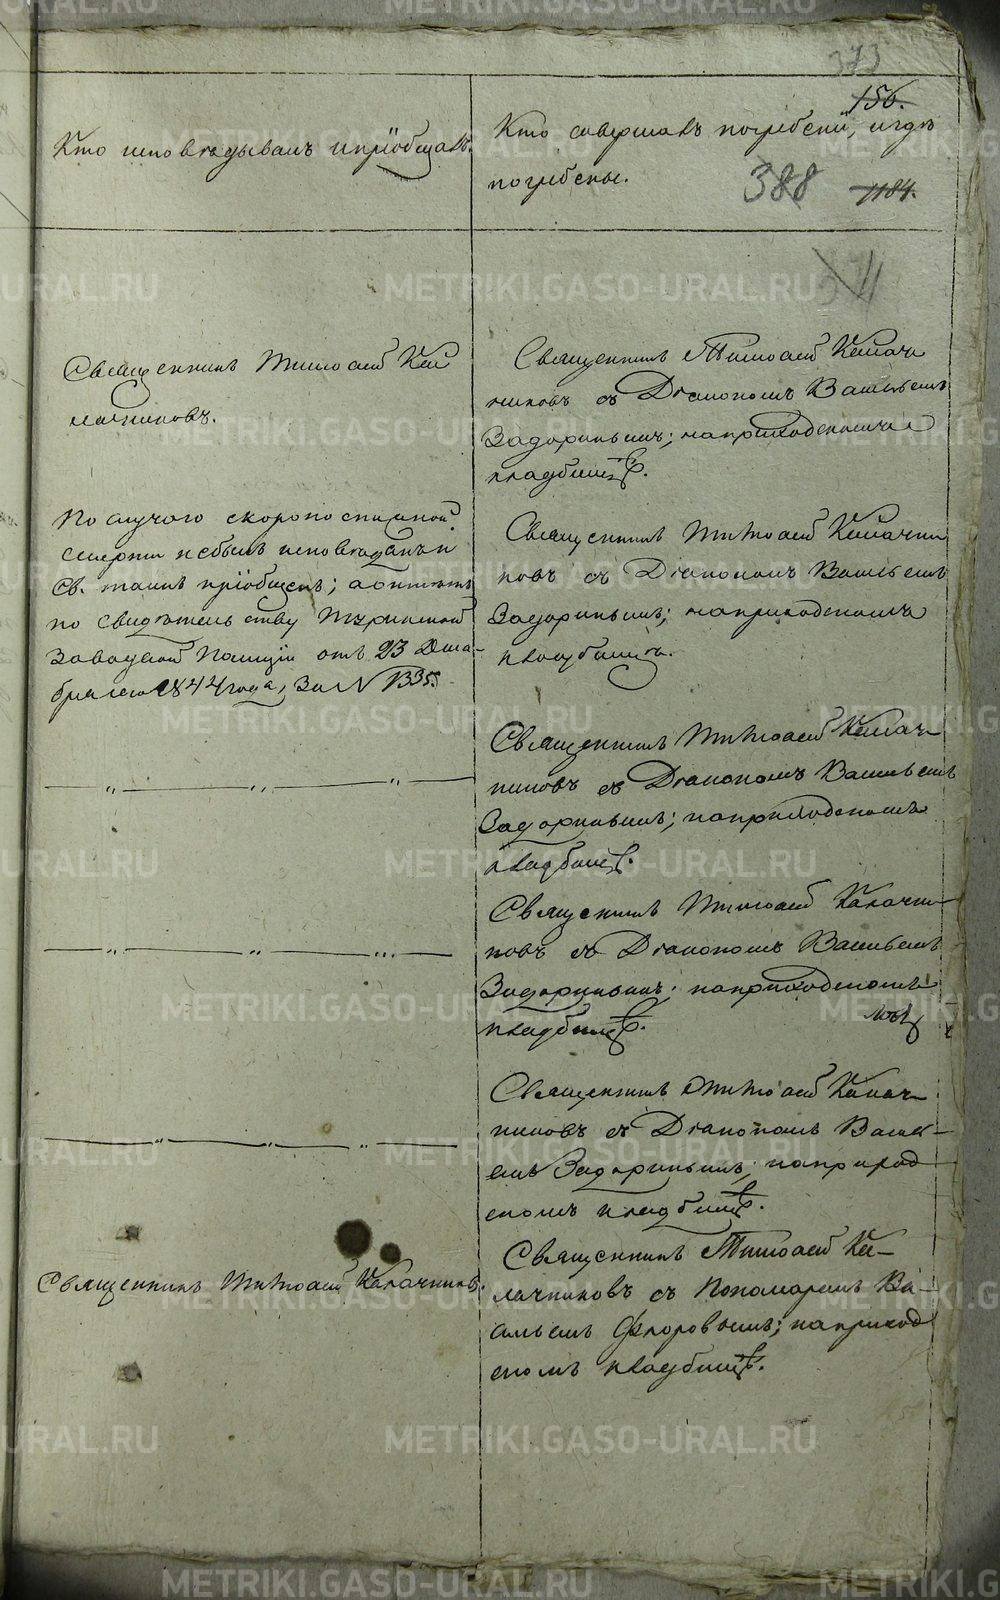 373
156.
Кто исповѣдывалъ и пріобщалъ.
Кто совершалъ погребеніе, и гдѣ
погребены.
388 1184.
Священникъ Тимоѳей Ка
лачниковъ.
Священникъ Тимоѳей Калач
никовъ съ Діакономъ Васильемъ
Задоринымъ; на приходскомъ
кладбищѣ.
По случаю скоропостижной
смерти не былъ исповѣданъ и
Св. таинъ пріобщенъ; а отпѣтъ
по свидѣтельству Туринской
Заводской Полиціи отъ 23 Дека-
бря сего 1844 года, За N 1335.
Священникъ Тимоѳей Калачни
ковъ съ Діакономъ Васильемъ
Задоринымъ; на приходскомъ
кладбищѣ.
Священникъ Тимоѳей Калач
никовъ съ Діакономъ Васильемъ
Задоринымъ; на приходскомъ
кладбищѣ.
Священникъ Тимоѳей Калачни
ковъ съ Діакономъ Васильемъ
Задоринымъ; на приходскомъ
кладбищѣ.
Священникъ Тимоѳей Калач
никовъ съ Діакономъ Василь-
емъ Задоринымъ; на приход
скомъ кладбищѣ.
Священникъ Тимоѳей Калачниковъ.
Священникъ Тимоѳей Ка-
лачниковъ съ Пономаремъ Ва-
сильемъ Флоровымъ; на приход
скомъ кладбищѣ.
METRIKI.GASO-URAL.RU